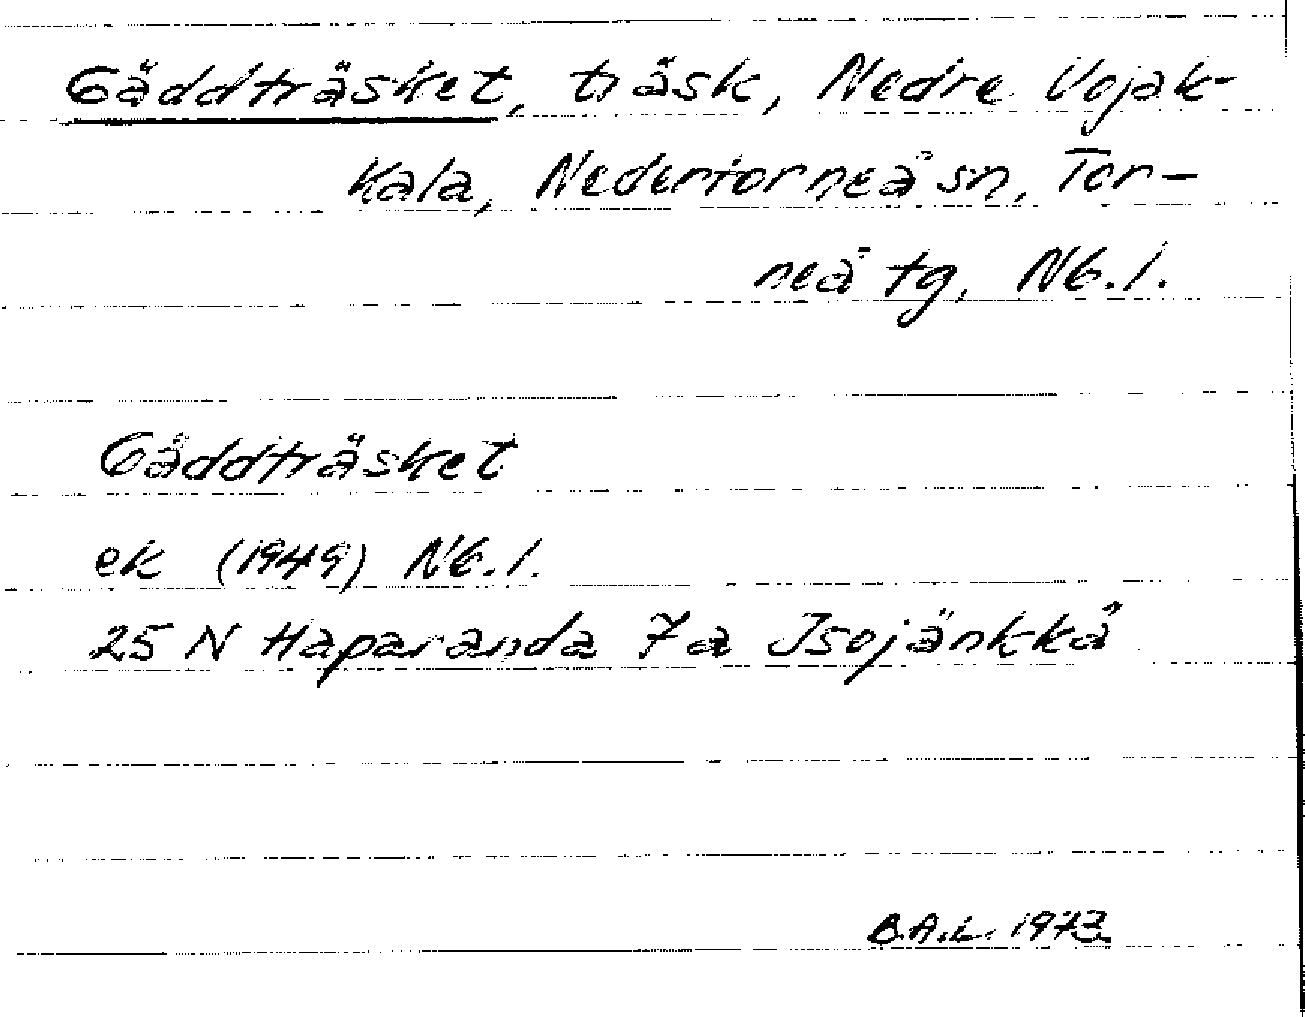 Gäddträsket, träsk, Nedre Vojak-
kala, Nedertorneå sn, Tor-
neå tg, Nb.l.
Gäddträsket
ek (1949) Nb.l.
25 N Haparanda 7a Isojänkkä
B.A.L. 1973